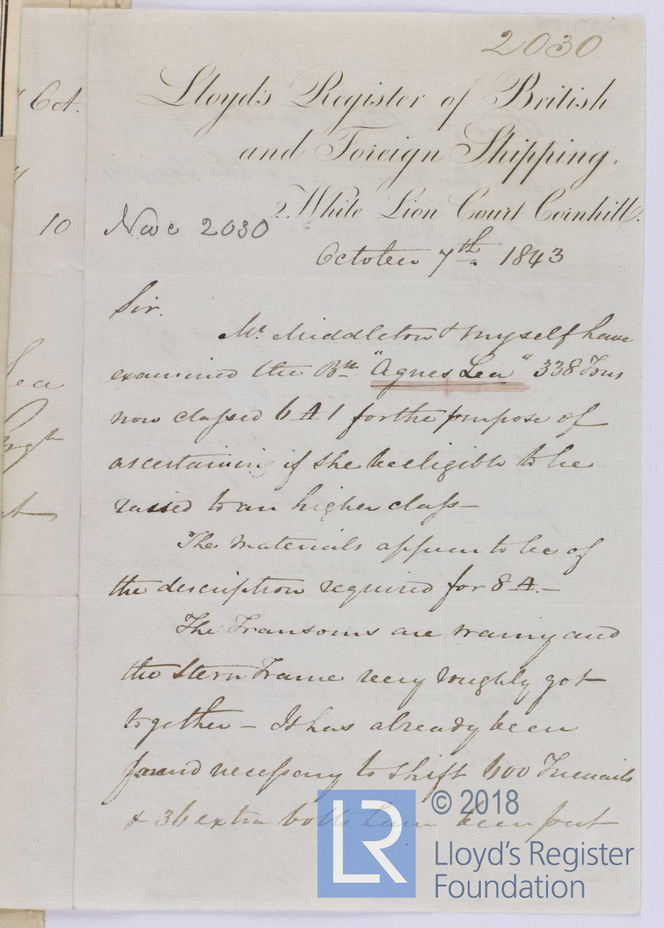 2030
Lloyd's Register of British
and Foreign Shipping.
2, White Lion Court Cornhill.
Nwc 2030
October 7th 1843
Sir.
Mr. Middleton & myself have
examined the Bk "Agnes Lea" 338 Tons
now classed 6 A 1 for the purpose of
ascertaining if she be eligible to be
raised to an higher class—
The materials appear to be of
the description required for 8 A.—
The Transoms are wainy and
the Stern Frame very roughly got
together — It has already been
found necessary to shift 600 Treenails
& 36 extra bolts have been put
" Oct.
"
10
Lea
st
LR
© 2018
Lloyd's Register
Foundation